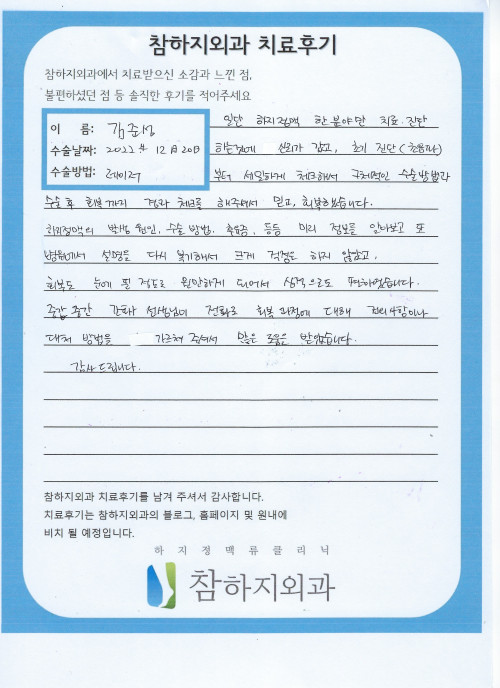 참하지외과 치료후기
참하지외과에서 치료받으신 소감과 느낀 점,
불편하셨던 점 등 솔직한 후기를 적어주세요
이 름: 김준성
수술날짜: 2022년 12월 20일
수술방법: 레이저
일단 하지정맥 한 분야만 치료·진단
하는점에 신뢰가 갔고, 초기 진단(초음파)
부터 세밀하게 체크해서 구체적인 수술방법과
수술 후 회복까지 경과 체크를 해주셔서 믿고, 회복했습니다.
하지정맥의 발병 원인, 수술 방법, 후유증, 등등 미리 정보를 알아보고 또
병원에서 설명을 다시 듣기해서 크게 걱정은 하지 않았고,
회복도 눈에 띌 정도로 원만하게 되어서 심적으로도 편하였습니다.
중간 중간 간호사 선생님이 전화로 회복 과정에 대해 관리사항이나
대처 방법을 가르쳐 주셔서 많은 도움을 받았습니다.
감사드립니다.
참하지외과 치료후기를 남겨 주셔서 감사합니다.
치료후기는 참하지외과의 블로그, 홈페이지 및 원내에
비치 될 예정입니다.
하지정맥류클리닉
참하지외과